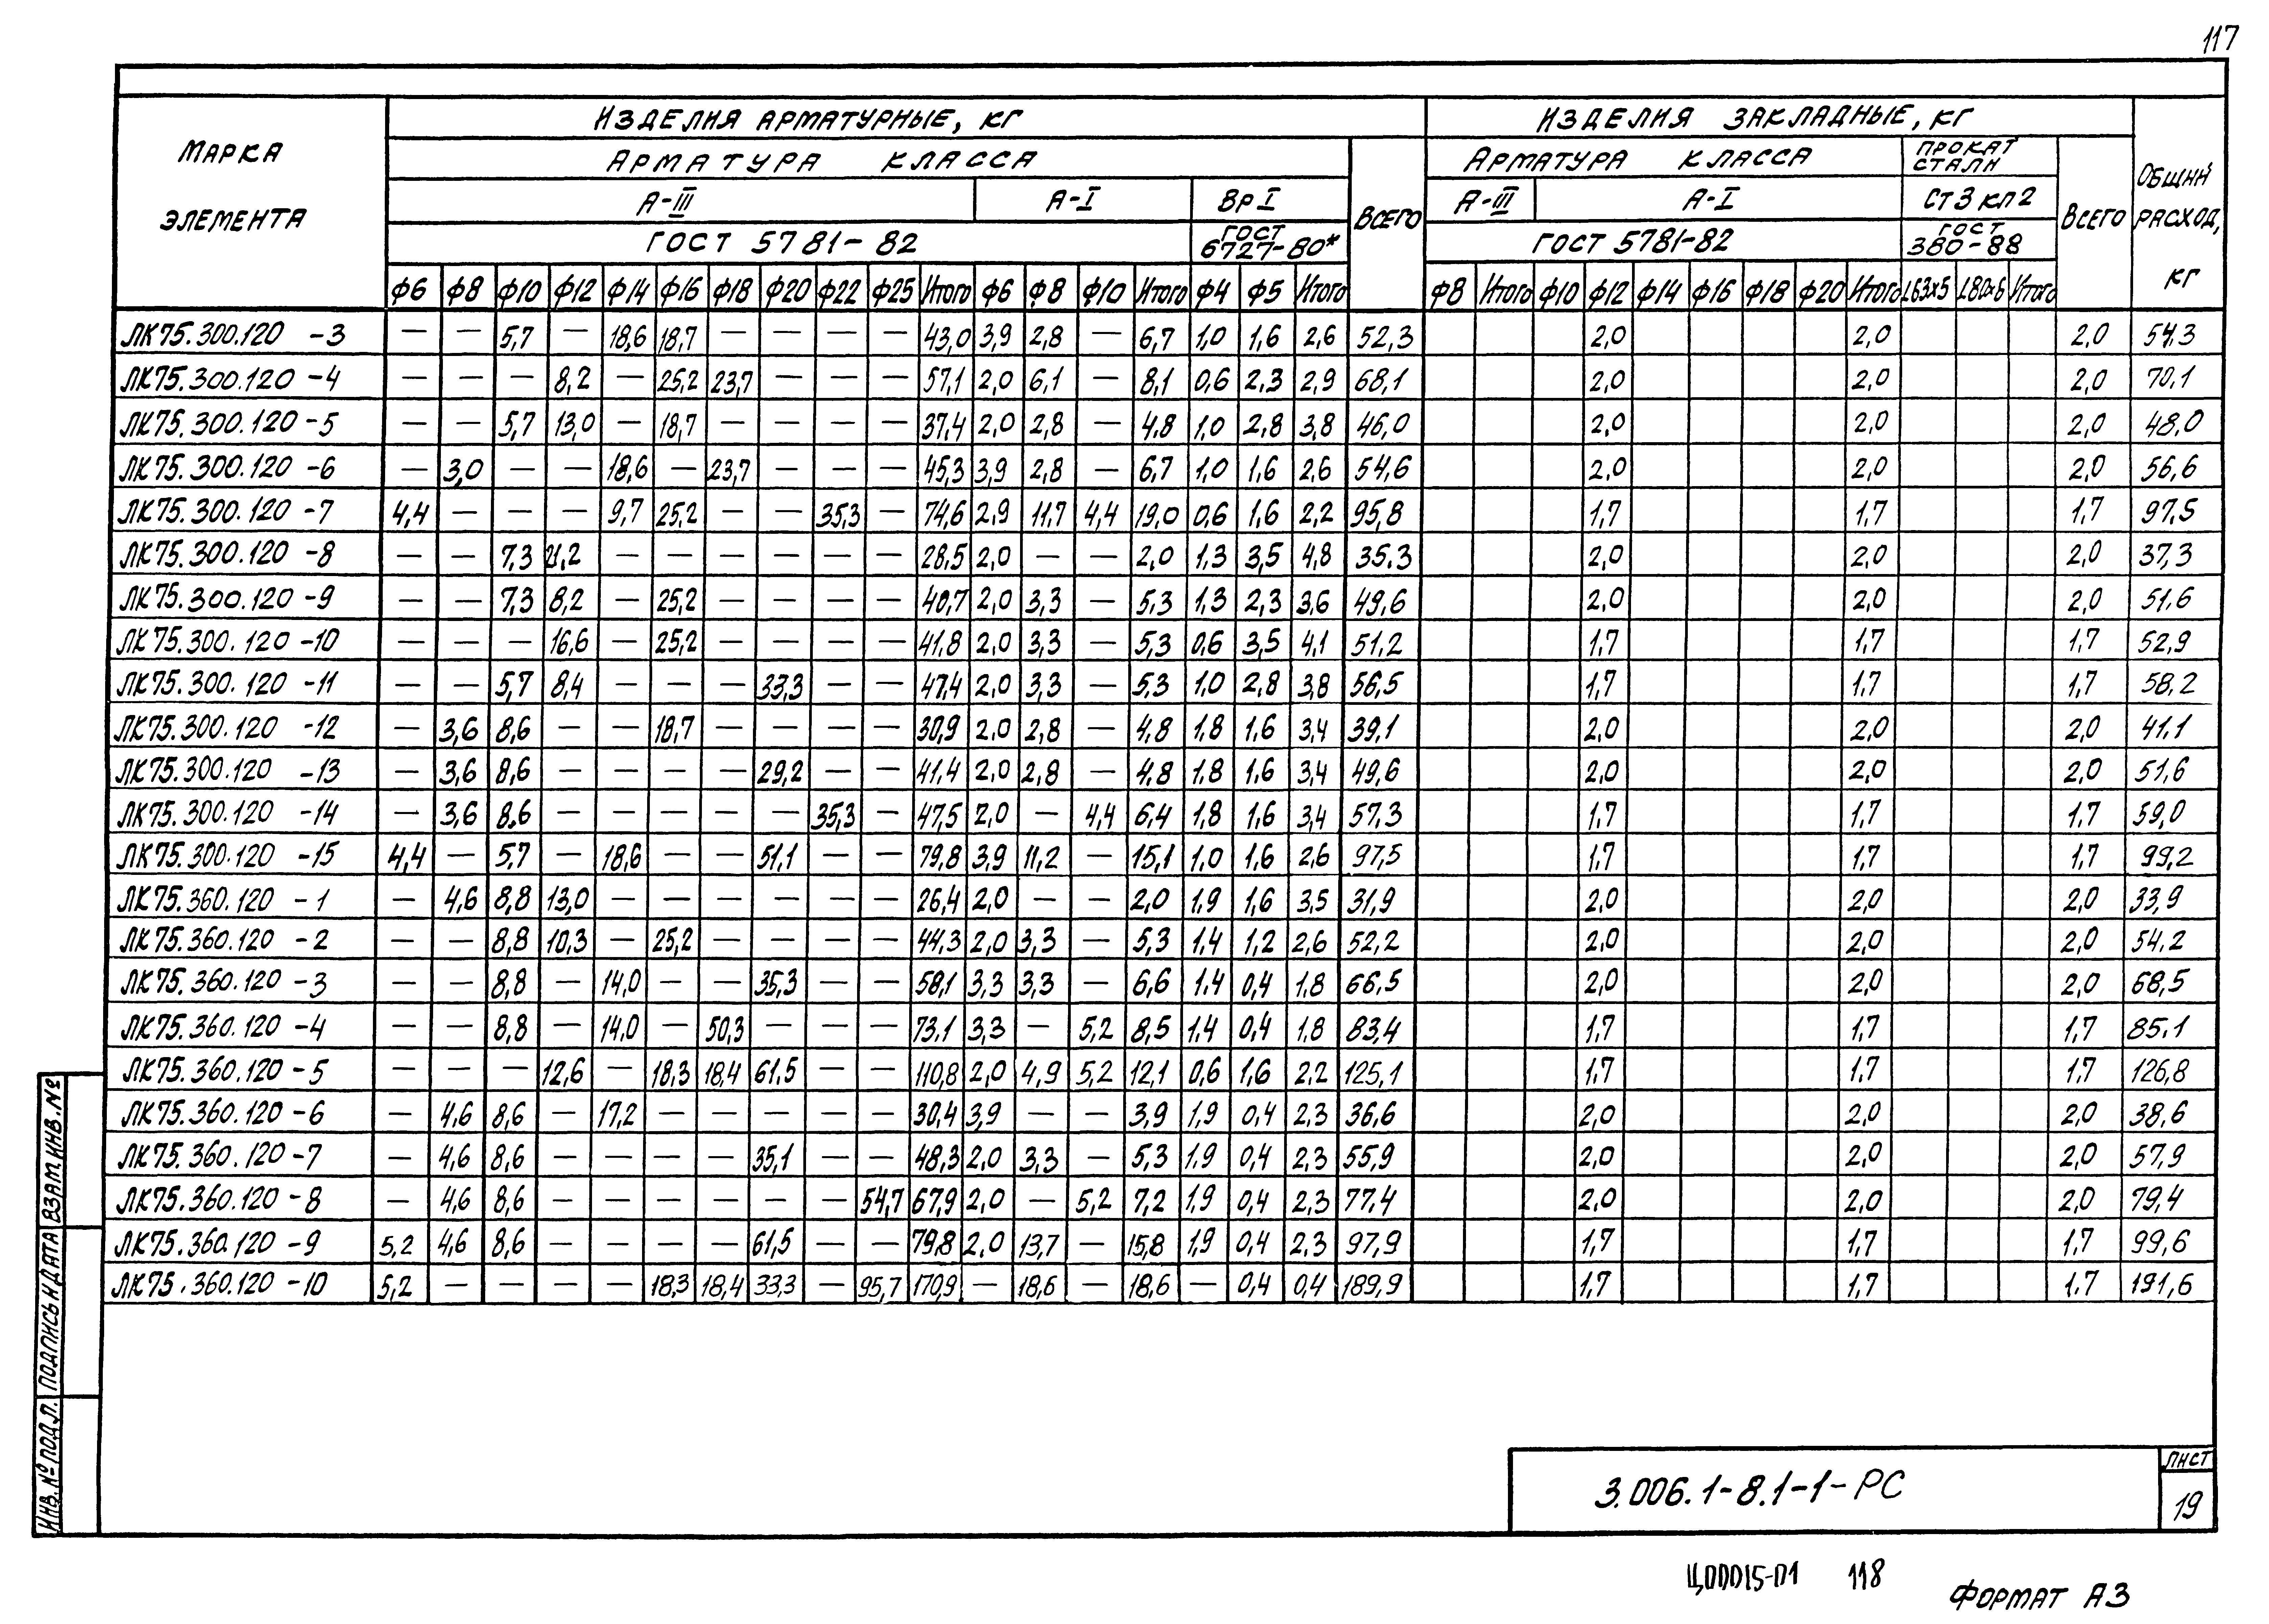 117
МАРКА ЭЛЕМЕНТА
ИЗДЕЛИЯ АРМАТУРНЫЕ, КГ
ИЗДЕЛИЯ ЗАКЛАДНЫЕ, КГ
ОБЩИЙ РАСХОД, КГ
АРМАТУРА КЛАССА
ВСЕГО
АРМАТУРА КЛАССА
ПРОКАТ СТАЛИ
ВСЕГО
А-III А-I ВрI А-III А-I СТ3 КП2
ГОСТ 5781-82 ГОСТ 6727-80* ГОСТ 5781-82 ГОСТ 380-88
Ф6 Ф8 Ф10 Ф12 Ф14 Ф16 Ф18 Ф20 Ф22 Ф25 Итого Ф6 Ф8 Ф10 Итого Ф4 Ф5 Итого Ф8 Итого Ф10 Ф12 Ф14 Ф16 Ф18 Ф20 Итого L63х5 L80х6 Итого
ЛК75.300.120 -3 — — 5,7 — 18,6 18,7 — — — — 43,0 3,9 2,8 — 6,7 1,0 1,6 2,6 52,3 2,0 2,0 2,0 54,3
ЛК75.300.120 -4 — — — 8,2 — 25,2 23,7 — — — 57,1 2,0 6,1 — 8,1 0,6 2,3 2,9 68,1 2,0 2,0 2,0 70,1
ЛК75.300.120 -5 — — 5,7 13,0 — 18,7 — — — — 37,4 2,0 2,8 — 4,8 1,0 2,8 3,8 46,0 2,0 2,0 2,0 48,0
ЛК75.300.120 -6 — 3,0 — — 18,6 — 23,7 — — — 45,3 3,9 2,8 — 6,7 1,0 1,6 2,6 54,6 2,0 2,0 2,0 56,6
ЛК75.300.120 -7 4,4 — — — 9,7 25,2 — — 35,3 — 74,6 2,9 11,7 4,4 19,0 0,6 1,6 2,2 95,8 1,7 1,7 1,7 97,5
ЛК75.300.120 -8 — — 7,3 21,2 — — — — — — 28,5 2,0 — — 2,0 1,3 3,5 4,8 35,3 2,0 2,0 2,0 37,3
ЛК75.300.120 -9 — — 7,3 8,2 — 25,2 — — — — 40,7 2,0 3,3 — 5,3 1,3 2,3 3,6 49,6 2,0 2,0 2,0 51,6
ЛК75.300.120 -10 — — — 16,6 — 25,2 — — — — 41,8 2,0 3,3 — 5,3 0,6 3,5 4,1 51,2 1,7 1,7 1,7 52,9
ЛК75.300.120 -11 — — 5,7 8,4 — — — 33,3 — — 47,4 2,0 3,3 — 5,3 1,0 2,8 3,8 56,5 1,7 1,7 1,7 58,2
ЛК75.300.120 -12 — 3,6 8,6 — — 18,7 — — — — 30,9 2,0 2,8 — 4,8 1,8 1,6 3,4 39,1 2,0 2,0 2,0 41,1
ЛК75.300.120 -13 — 3,6 8,6 — — — — 29,2 — — 41,4 2,0 2,8 — 4,8 1,8 1,6 3,4 49,6 2,0 2,0 2,0 51,6
ЛК75.300.120 -14 — 3,6 8,6 — — — — — 35,3 — 47,5 2,0 — 4,4 6,4 1,8 1,6 3,4 57,3 1,7 1,7 1,7 59,0
ЛК75.300.120 -15 4,4 — 5,7 — 18,6 — — 51,1 — — 79,8 3,9 11,2 — 15,1 1,0 1,6 2,6 97,5 1,7 1,7 1,7 99,2
ЛК75.360.120 -1 — 4,6 8,8 13,0 — — — — — — 26,4 2,0 — — 2,0 1,9 1,6 3,5 31,9 2,0 2,0 2,0 33,9
ЛК75.360.120 -2 — — 8,8 10,3 — 25,2 — — — — 44,3 2,0 3,3 — 5,3 1,4 1,2 2,6 52,2 2,0 2,0 2,0 54,2
ЛК75.360.120 -3 — — 8,8 — 14,0 — — 35,3 — — 58,1 3,3 3,3 — 6,6 1,4 0,4 1,8 66,5 2,0 2,0 2,0 68,5
ЛК75.360.120 -4 — — 8,8 — 14,0 — 50,3 — — — 73,1 3,3 — 5,2 8,5 1,4 0,4 1,8 83,4 1,7 1,7 1,7 85,1
ЛК75.360.120 -5 — — — 12,6 — 18,3 18,4 61,5 — — 110,8 2,0 4,9 5,2 12,1 0,6 1,6 2,2 125,1 1,7 1,7 1,7 126,8
ЛК75.360.120 -6 — 4,6 8,6 — 17,2 — — — — — 30,4 3,9 — — 3,9 1,9 0,4 2,3 36,6 2,0 2,0 2,0 38,6
ЛК75.360.120 -7 — 4,6 8,6 — — — — 35,1 — — 48,3 2,0 3,3 — 5,3 1,9 0,4 2,3 55,9 2,0 2,0 2,0 57,9
ЛК75.360.120 -8 — 4,6 8,6 — — — — — — 54,7 67,9 2,0 — 5,2 7,2 1,9 0,4 2,3 77,4 2,0 2,0 2,0 79,4
ЛК75.360.120 -9 5,2 4,6 8,6 — — — — 61,5 — — 79,8 2,0 13,7 — 15,8 1,9 0,4 2,3 97,9 1,7 1,7 1,7 99,6
ЛК75.360.120 -10 5,2 — — — — 18,3 18,4 33,3 — 95,7 170,9 — 18,6 — 18,6 — 0,4 0,4 189,9 1,7 1,7 1,7 191,6
ИНВ. № ПОДЛ. ПОДПИСЬ И ДАТА ВЗАМ. ИНВ. №
3.006.1-8.1-1-РС
ЛИСТ
19
Ц00015-01 118
ФОРМАТ А3